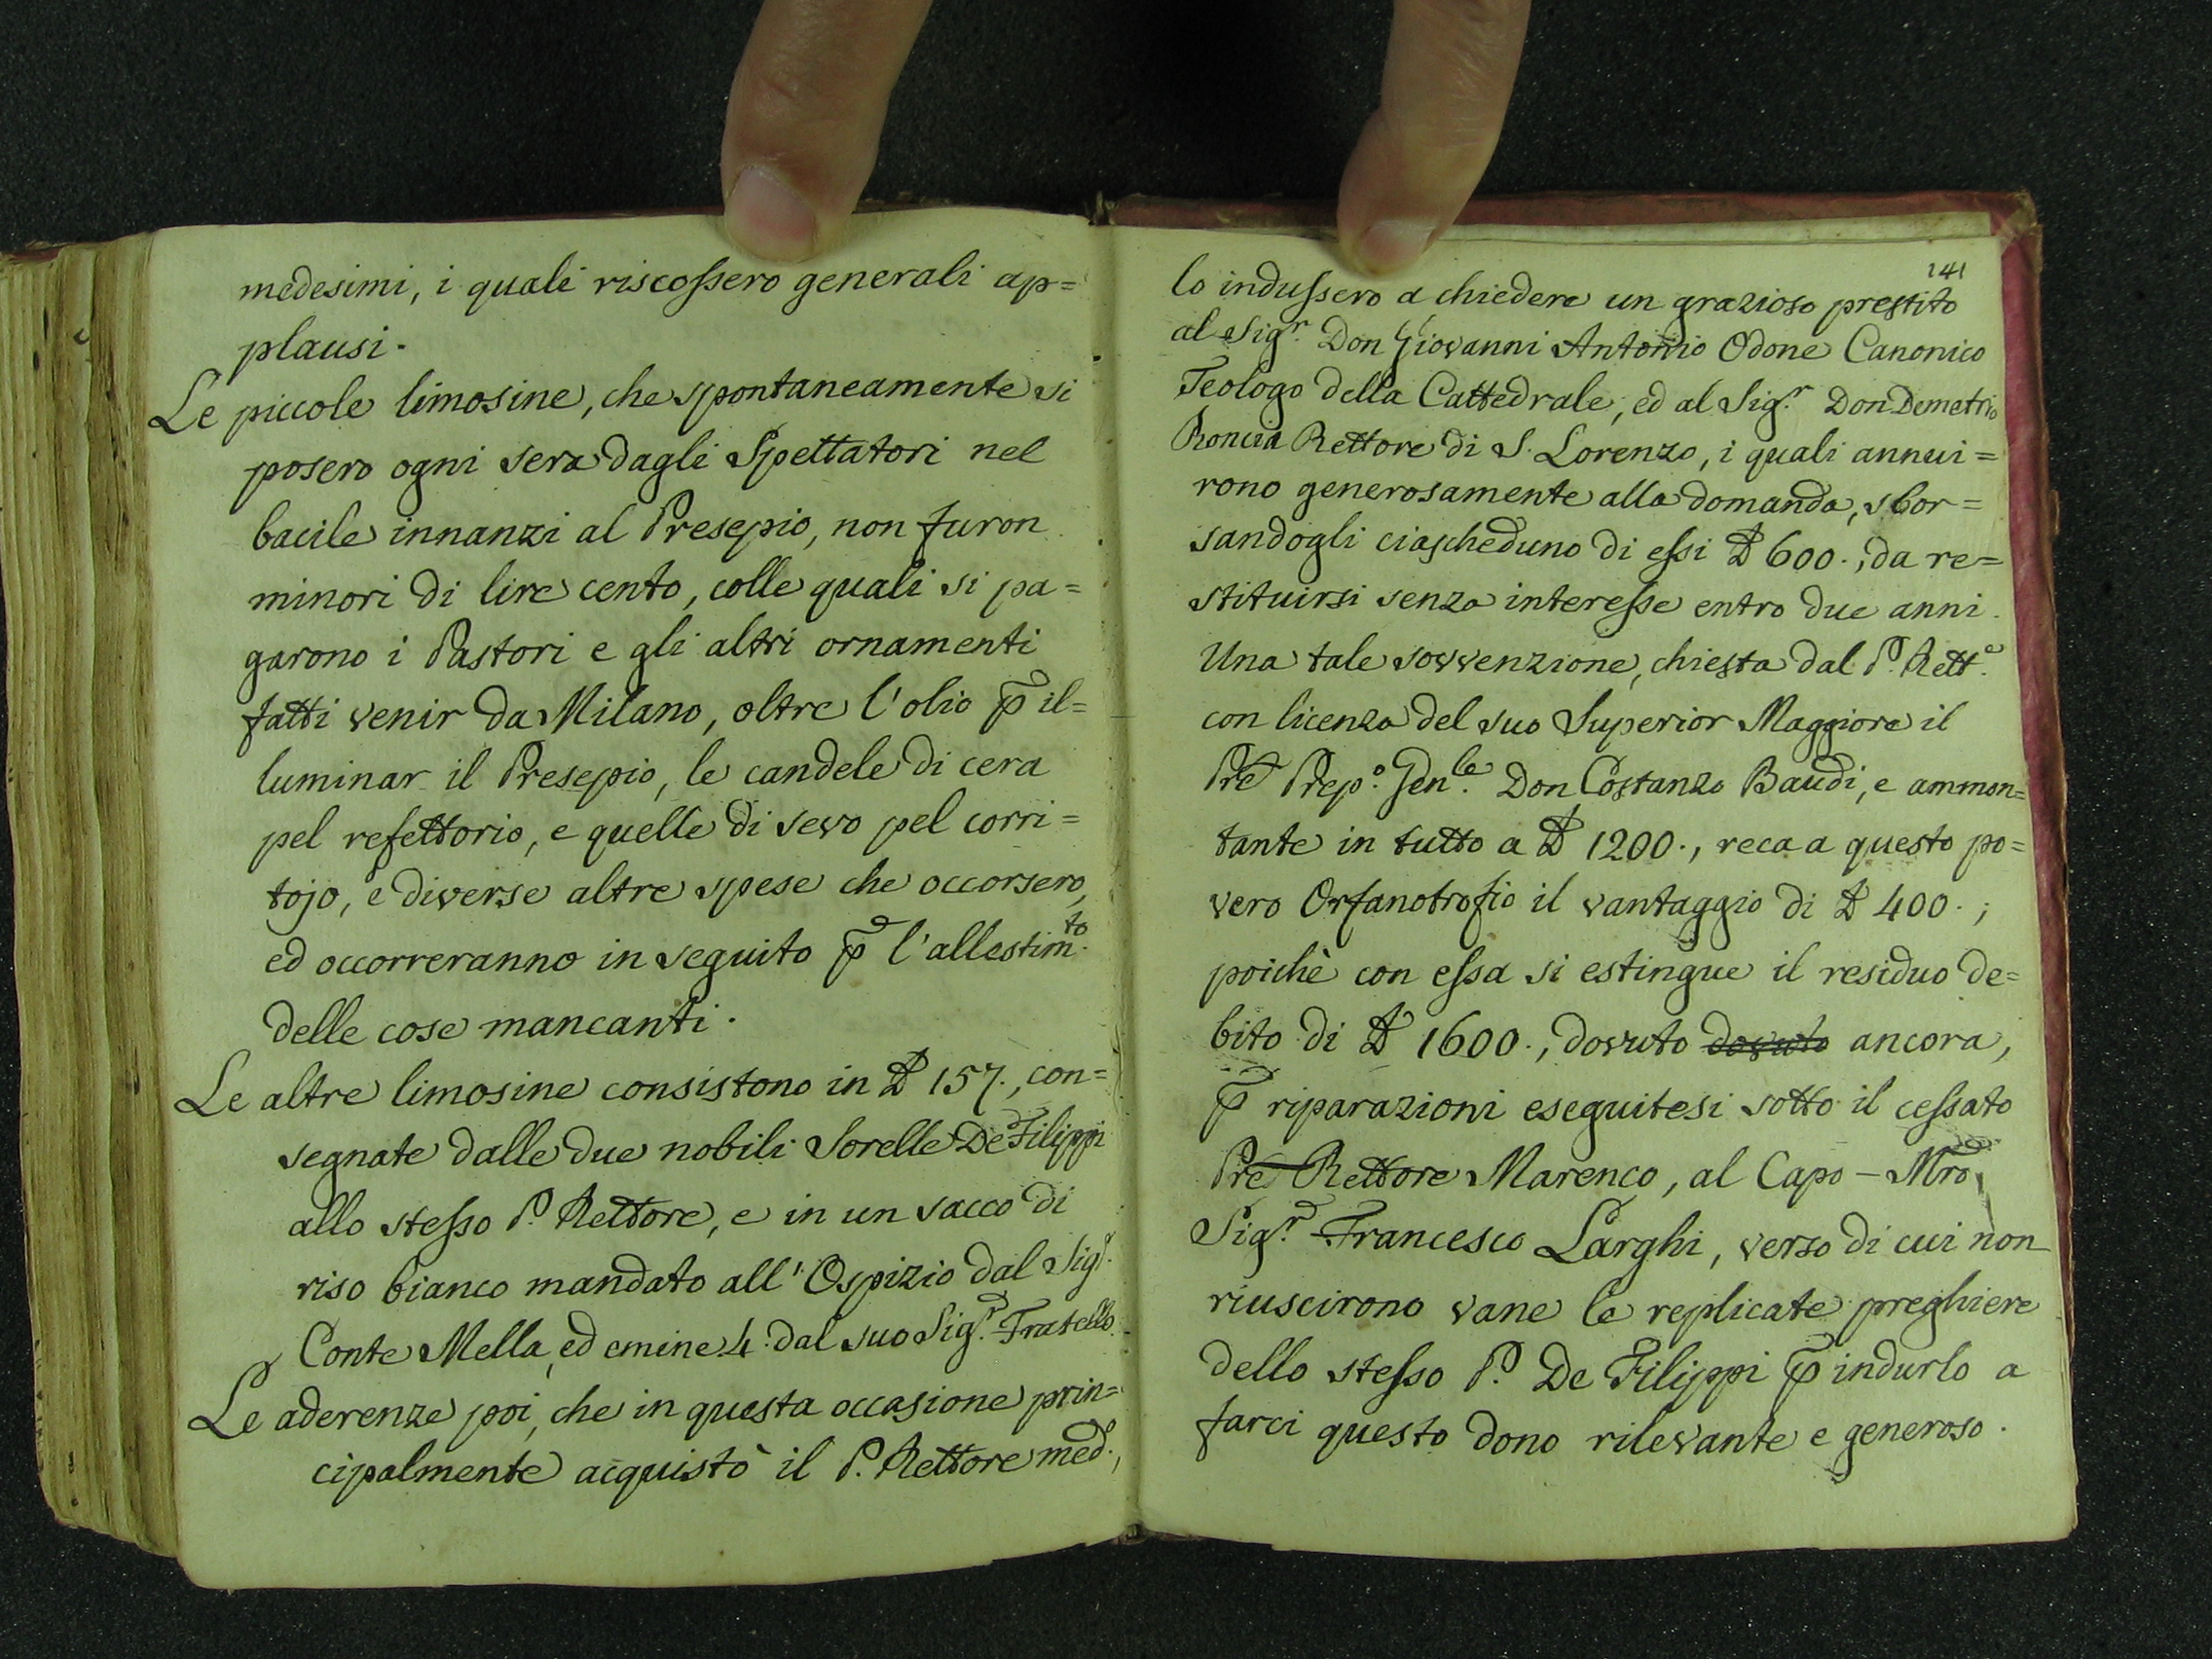 medesimi, i quali riscossero generali ap=
plausi.
Le piccole limosine, che spontaneamente si
posero ogni sera dagli Spettatori nel
bacile innanzi al Presepio, non furon
minori di lire cento, colle quali si pa=
garono i Pastori e gli altri ornamenti
fatti venir da Milano, oltre l'olio p il=
luminar il Presepio, le candele di cera
pel refettorio, e quelle di sevo pel corri=
tojo, e diverse altre spese che occorsero,
ed occorreranno in seguito p l'allestim.to
delle cose mancanti.
Le altre limosine consistono in ₶ 157., con=
segnate dalle due nobili Sorelle De Filippi
allo stesso P. Rettore, e in un sacco di
riso bianco mandato all'Ospizio dal Sig.r
Conte Mella, ed emine 4. dal suo Sig.r Fratello.
Le aderenze poi, che in questa occasione prin=
cipalmente acquistò il P. Rettore med.o,
141
lo indussero a chiedere un grazioso prestito
al Sig.r Don Giovanni Antonio Odone Canonico
Teologo della Cattedrale, ed al Sig.r Don Demetrio
Roncia Rettore di S. Lorenzo, i quali annui=
rono generosamente alla domanda, sbor=
sandogli ciascheduno di essi ₶ 600., da re=
stituirsi senza interesse entro due anni.
Una tale sovvenzione, chiesta dal P. Rett.e
con licenza del suo Superior Maggiore il
Pre Prep.o Gen.le Don Costanzo Baudi, e ammon=
tante in tutto a ₶ 1200., reca a questo po=
vero Orfanotrofio il vantaggio di ₶ 400.;
poichè con essa si estingue il residuo de=
bito di ₶ 1600., dovuto dovuto ancora,
p riparazioni eseguitesi sotto il cessato
Pre Rettore Marenco, al Capo-Mro
Sig.r Francesco Larghi, verso di cui non
riuscirono vane le replicate preghiere
dello stesso P. De Filippi p indurlo a
farci questo dono rilevante e generoso.